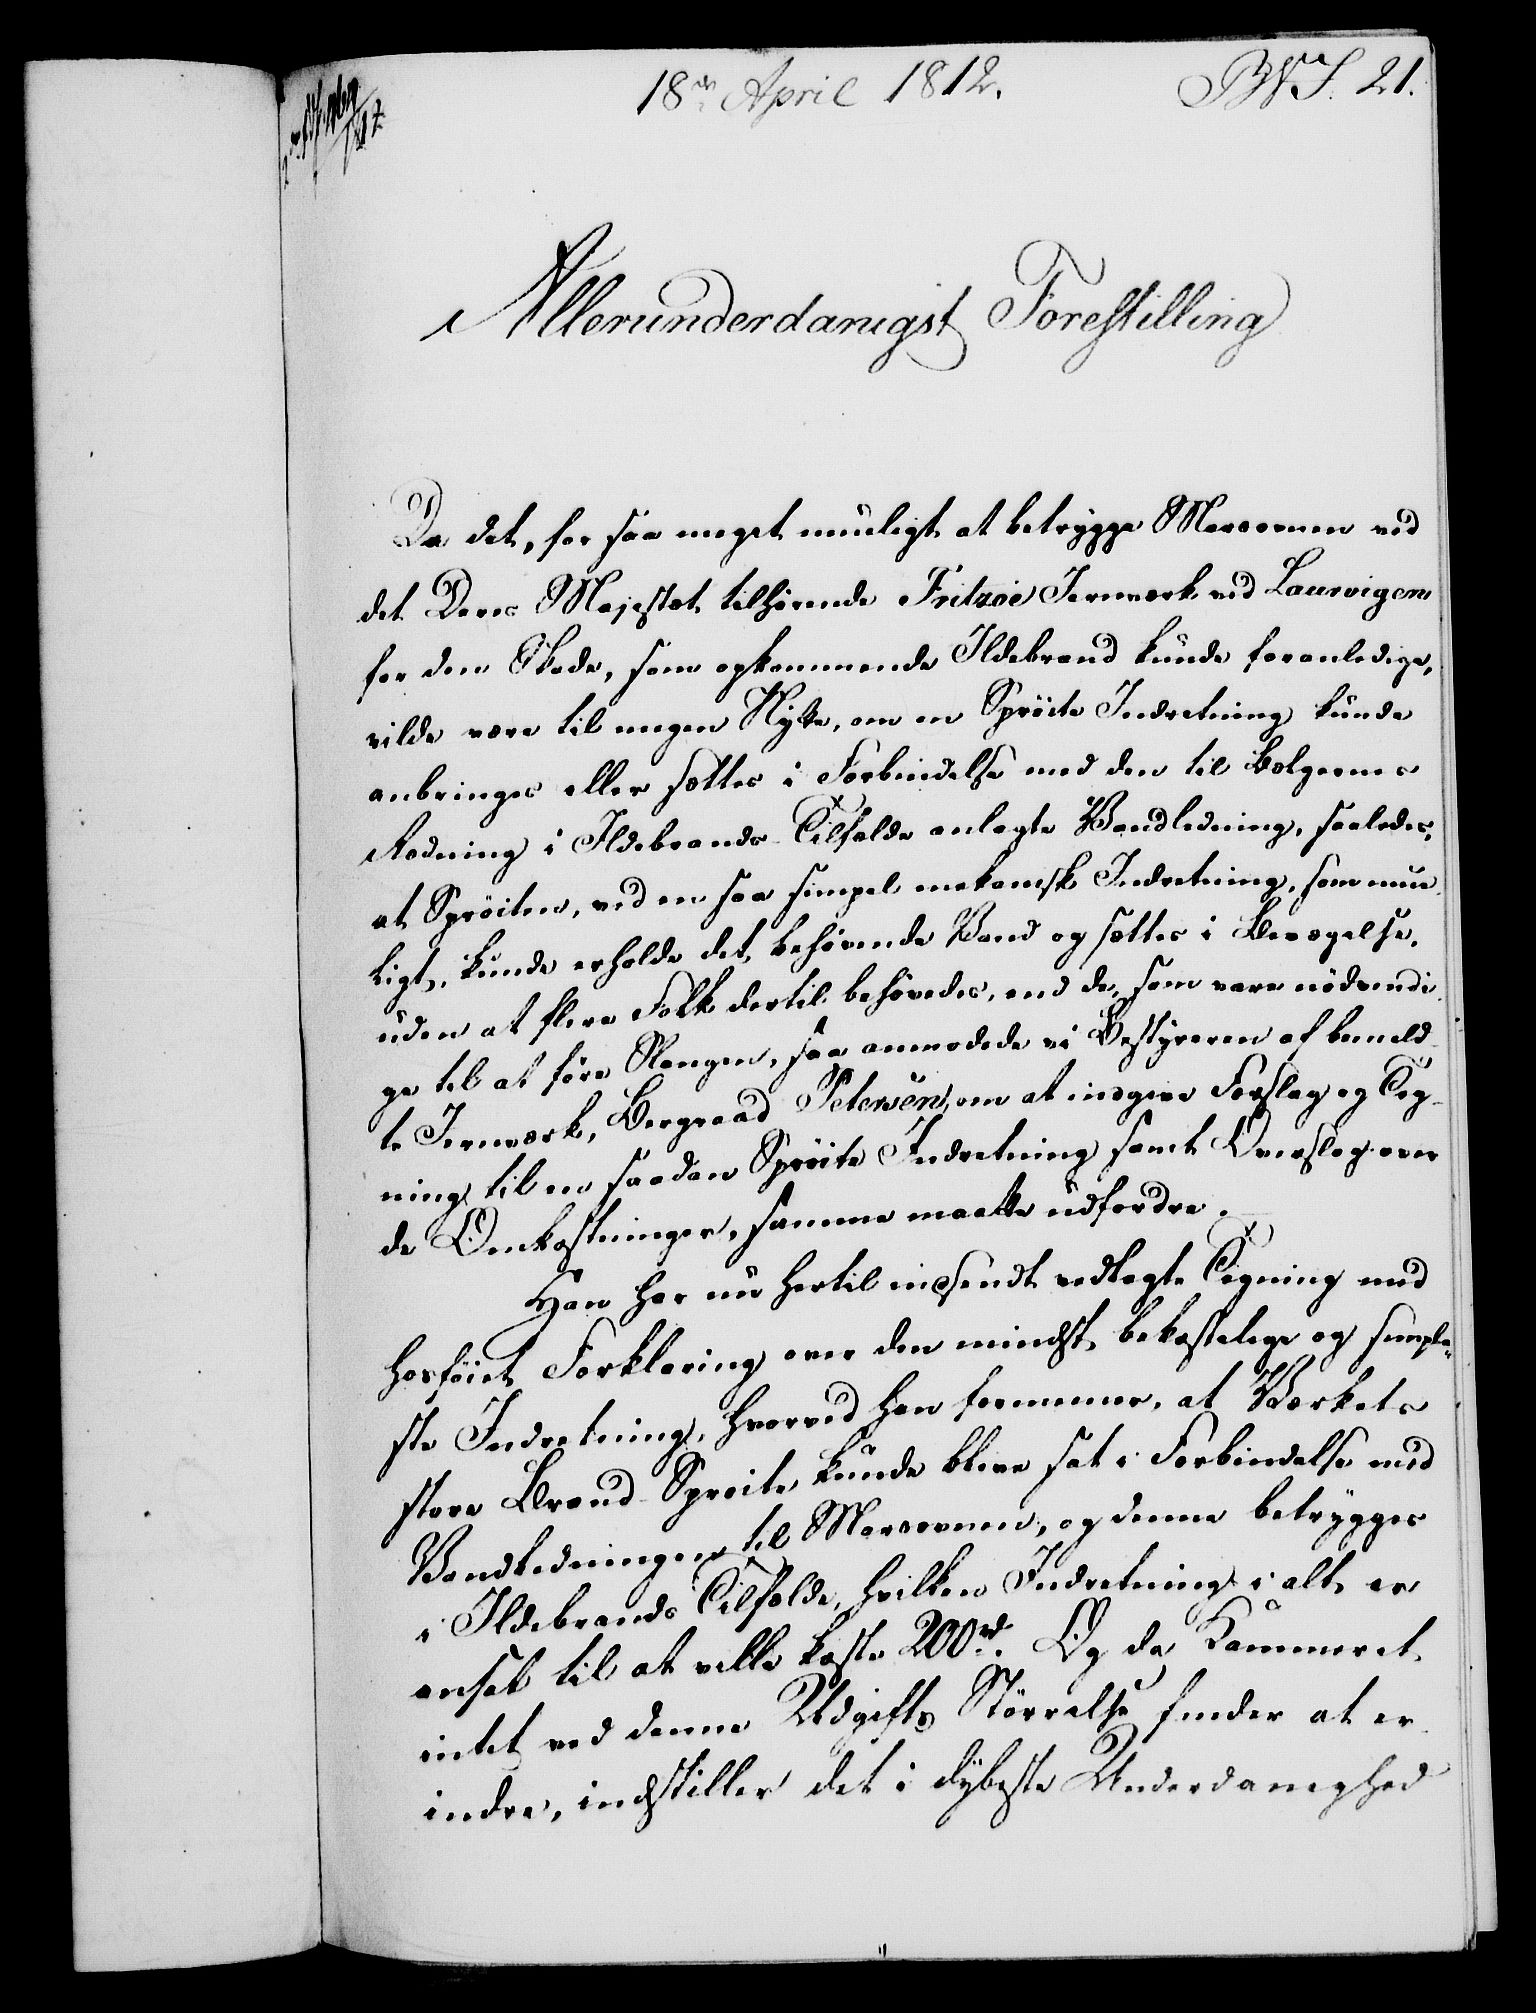 18de April 1812.
Allerunderdanigst Forestilling
Da det, for saa meget mueligt at betrygge Masovnen ved
det Deres Majestæt tilhørende Fritzøe Jernværk ved Laurvigen
for den Skade, som opkommende Ildebrand kunde foranledige,
vilde være til megen Nytte, om en Sprøite Indretning kunde
anbringes eller sættes i Forbindelse med den til Bælgernes
Redning i Ildebrands-Tilfælde anlagte Vandledning, saaledes,
at Sprøiten, ved en saa simpel mekanisk Indretning, som mue-
ligt, kunde erholde det behøvende Vand og sættes i Bevægelse,
uden at flere Folk dertil behøvedes, end de, som vare nödvendi-
ge til at føre Slangen, saa anmodede vi Bestyreren af bemeld-
te Jernværk, Bergraad Petersen, om at indgive Forslag og Teg-
ning til en saadan Sprøite Indretning samt Overslag over
de Omkostninger, samme maatte udfordre.
Han har nu hertil indsendt vedlagte Tegning med
hosføiet Forklaring over den mindst bekostelige og simple-
ste Indretning, hvorved han formener, at Værkets
store Brand-Sprøite kunde blive sat i Forbindelse med
Vandledningen til Masovnen, og denne betrygges
i Ildebrands Tilfælde, hvilken Indretning i alt er
ansat til at ville koste 200 rd. Og da Kammeret
intet ved denne Udgifts Størrelse finder at er-
indre, indstiller det i dybeste Underdanighed